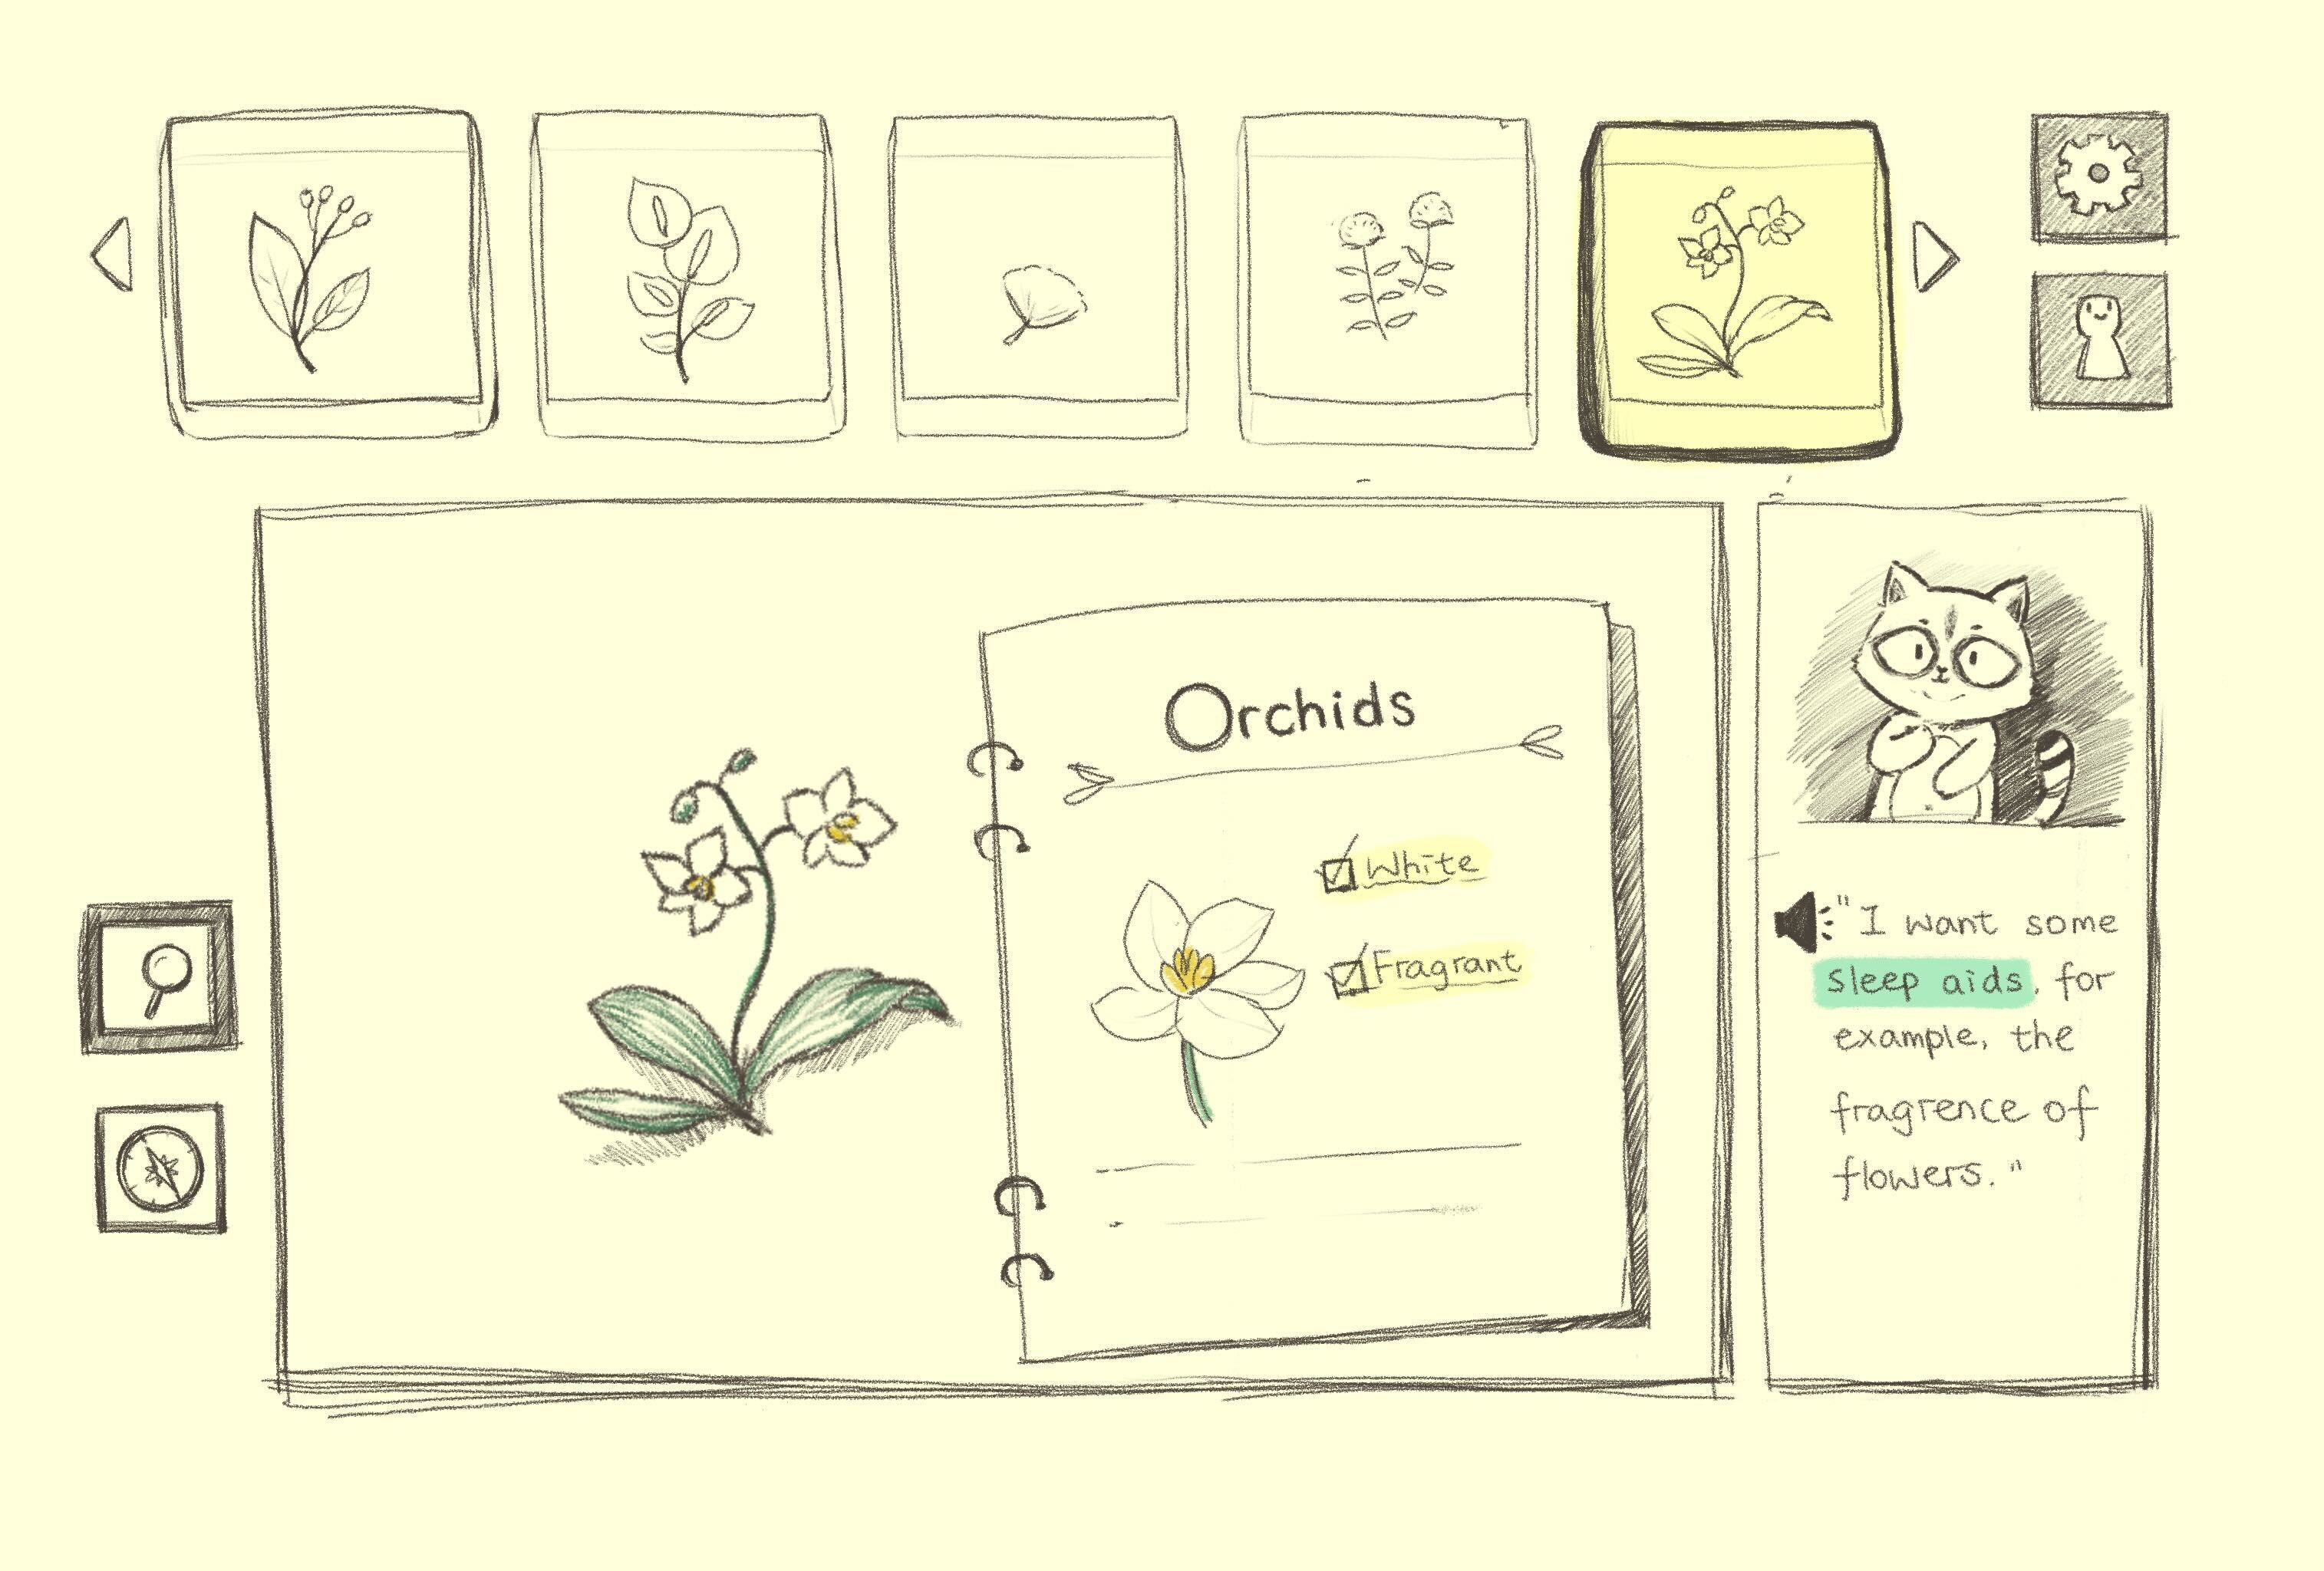 Orchids
White
Fragrant
"I want some
sleep aids, for
example, the
fragrence of
flowers."